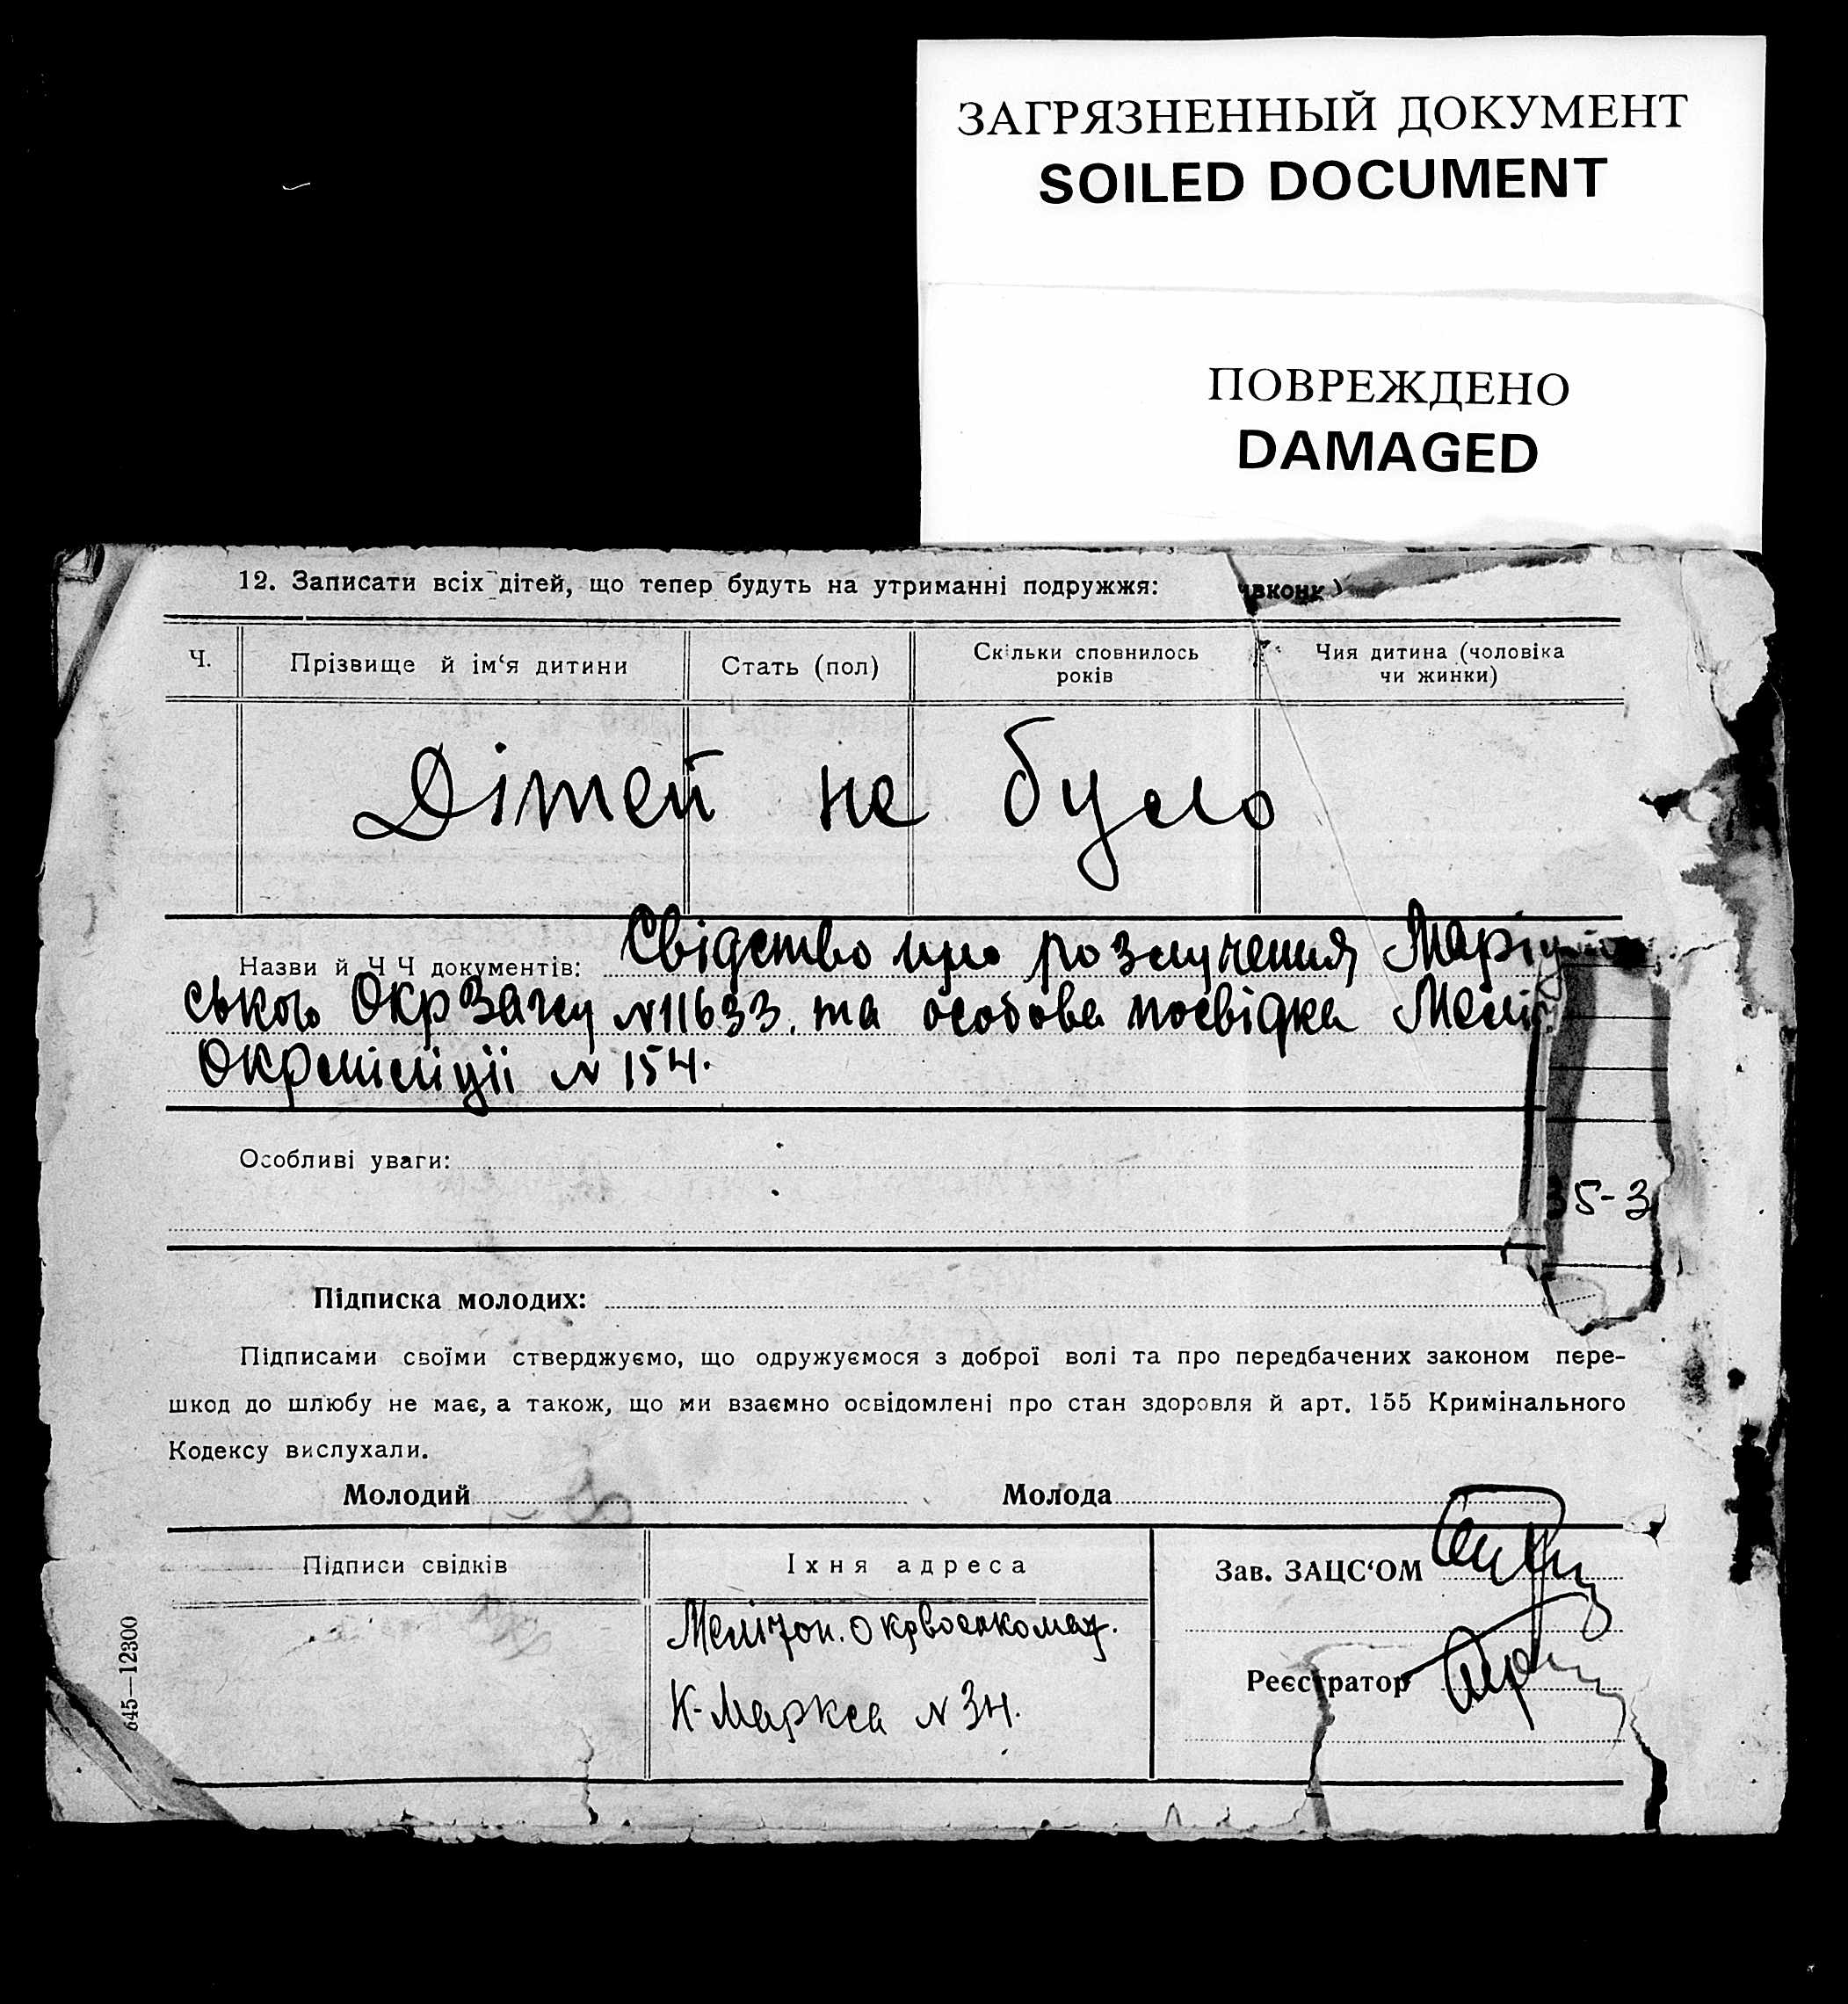 ЗАГРЯЗНЕННЫЙ ДОКУМЕНТ
SOILED DOCUMENT
ПОВРЕЖДЕНО
DAMAGED
12. Записати всіх дітей, що тепер будуть на утриманні подружжя:
Ч. Прізвище й ім‘я дитини Стать (пол) Скільки сповнилось років Чия дитина (чоловіка чи жинки)
Дітей не було
Назви й Ч Ч документів: Свідство про розлучення Маріу
ського ОкрЗагсу №11633. та особова посвідка Меліт
Окрміліції № 154.
Особливі уваги:
5-3
Підписка молодих:
Підписами своїми стверджуємо, що одружуємося з доброї волі та про передбачених законом пере-
шкод до шлюбу не має, а також, що ми взаємно освідомлені про стан здоровля й арт. 155 Кримінального
Кодексу вислухали.
Молодий Молода
Підписи свідків Їхня адреса Зав. ЗАЦС‘ОМ
Мелітоп. Окрвоенкомат.
Реєстратор
К-Маркса № 34.
645—12300